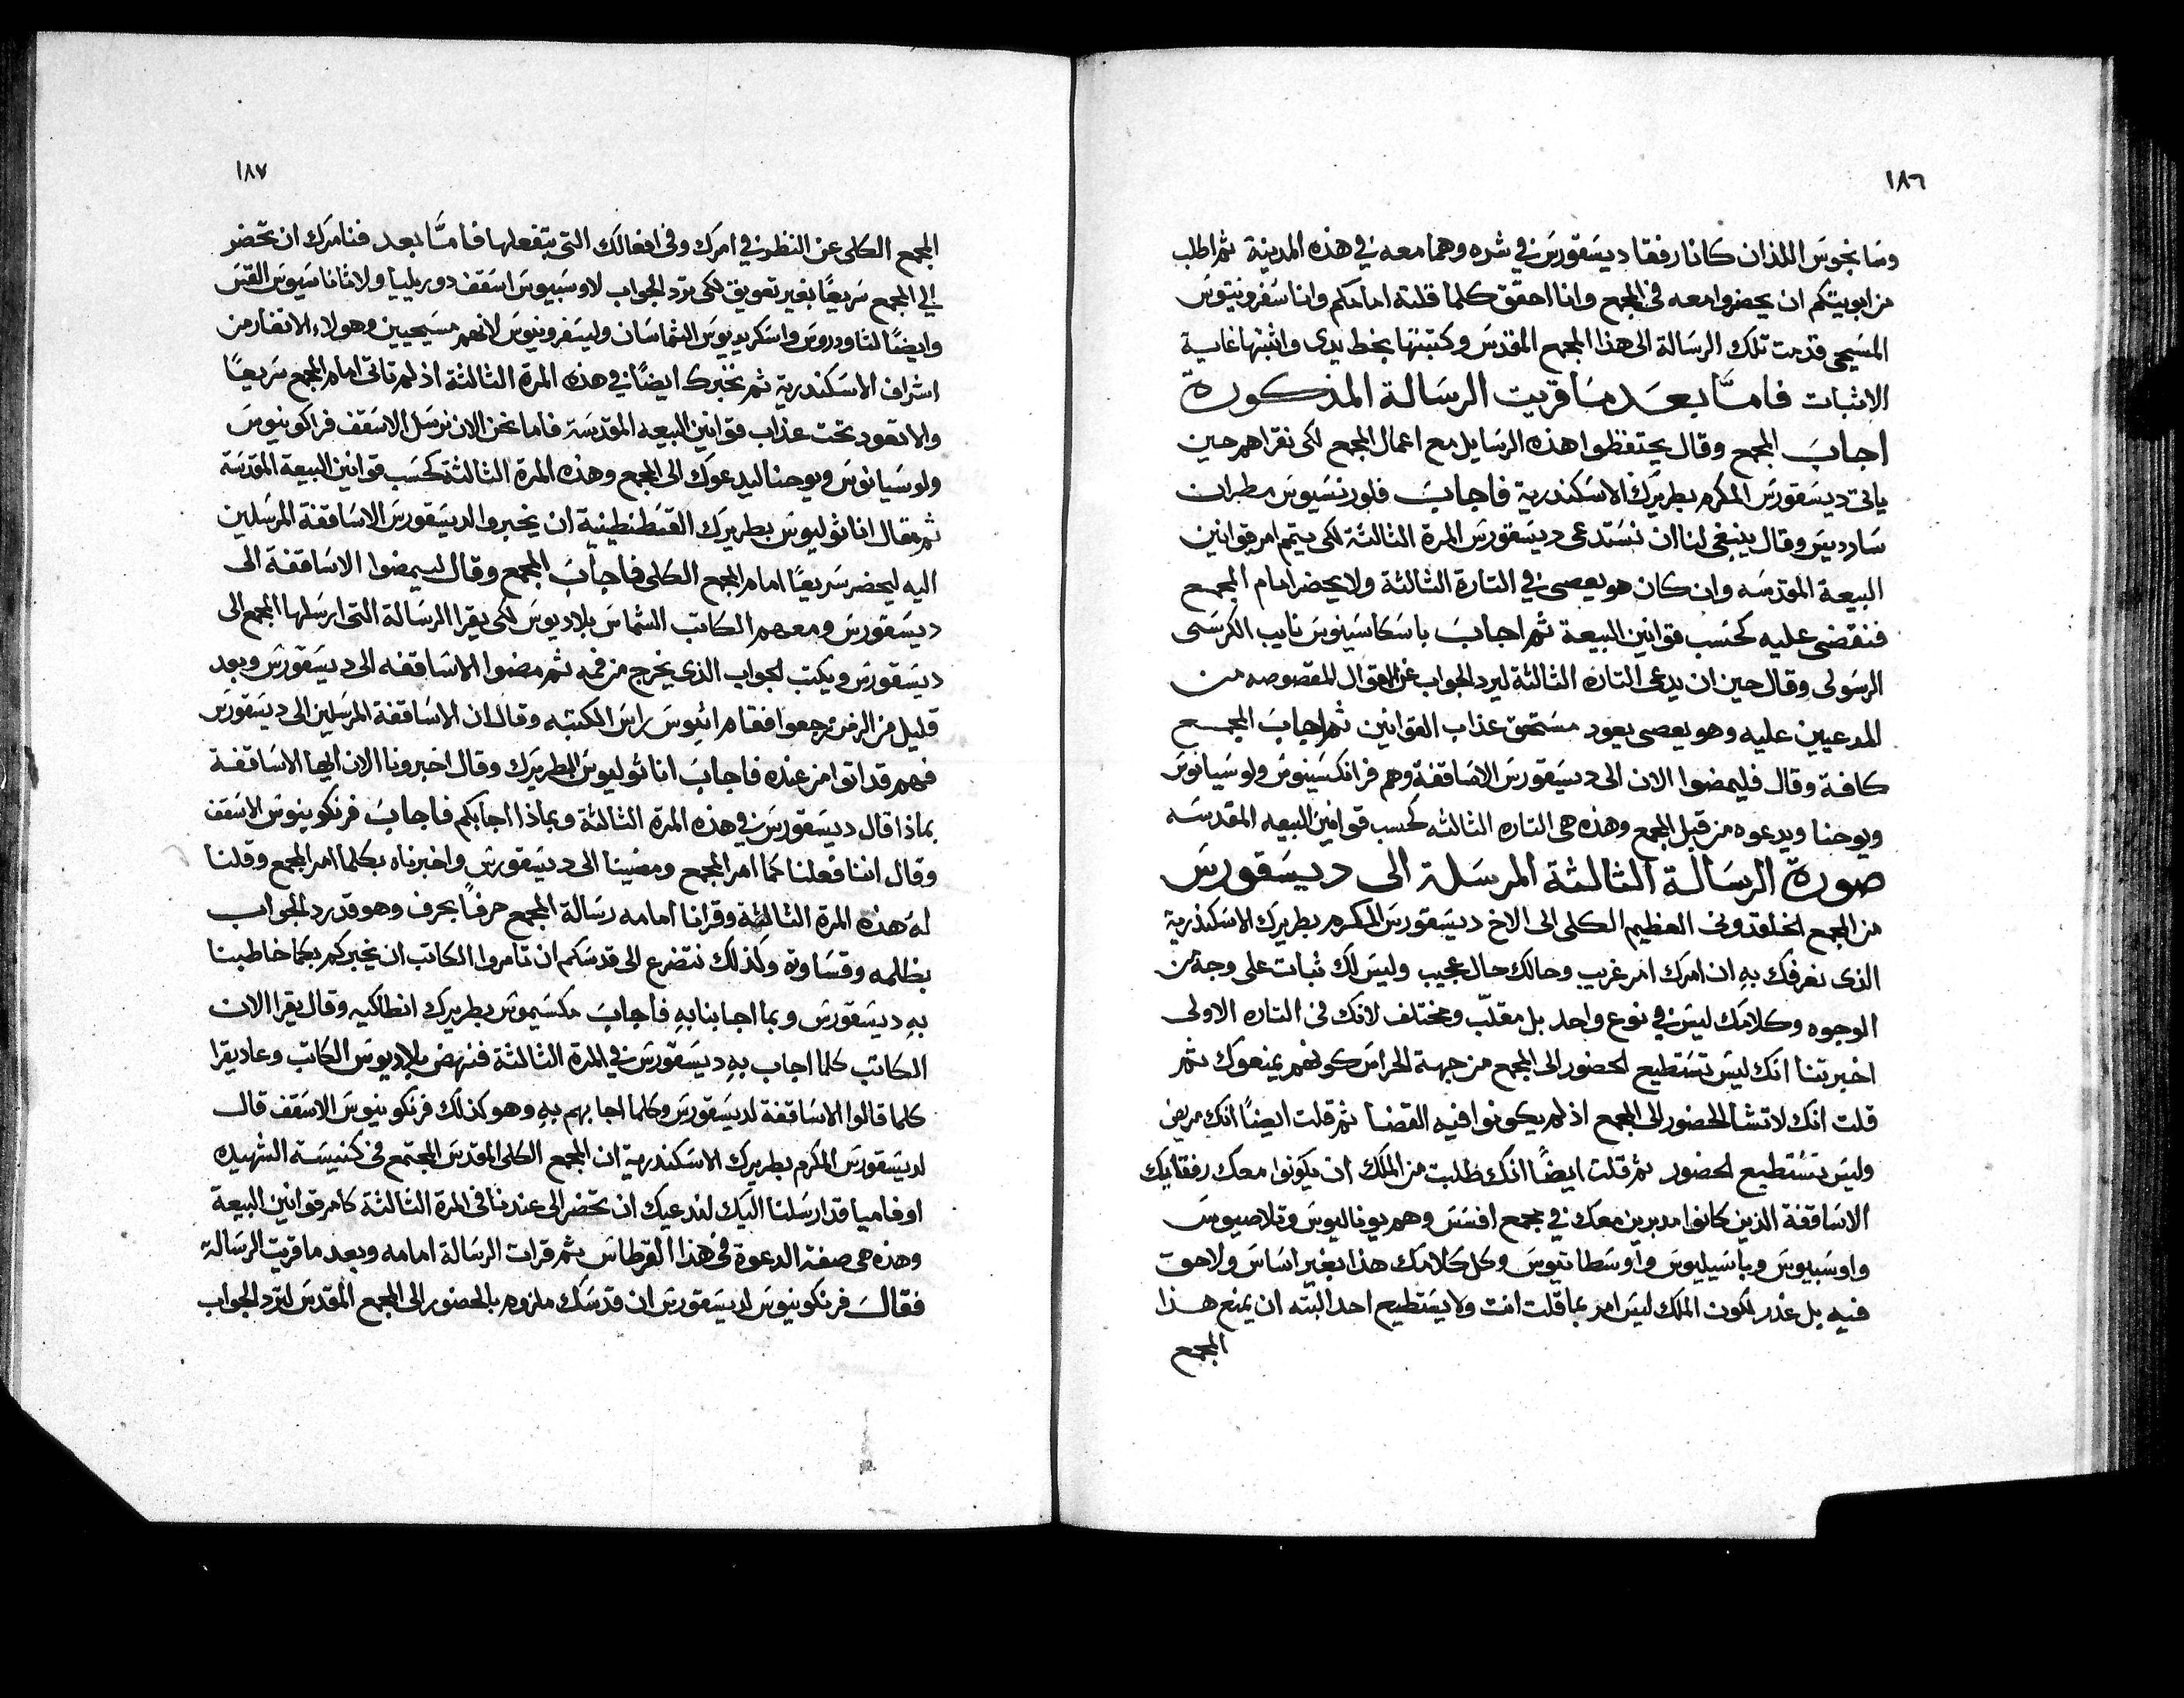 ١٨٦
وسانجوس اللذان كانا رفقا ديسقورس في شره وهما معه في هذه المدينة ثم اطلب
من ابويتكم ان يحضروا معه في المجمع وانا احقق كلما قلته امامكم وانا سفرونيوس
المسيحي قدمت تلك الرسالة الى هذا المجمع المقدس وكتبتها بخط يدى واثبتها غاية
الاثبات فامَّا بعد ما قريت الرسالة المذكورة
اجاب المجمع وقال يحتفظوا هذه الرسايل مع اعمال المجمع لكى نقراهم حين
ياتى ديسقورس المكرم بطريرك الاسكندرية فاجاب فلورنسيوس مطران
سارديس وقال ينبغى لنا ان نستدعى ديسقورس المرة الثالثة لكى يتم امر قوانين
البيعة المقدسه وان كان هو يعصى في التارة الثالثة ولا يحضر امام المجمع
فنقضى عليه كحسب قوانين البيعة ثم اجاب باسكاسينوس نايب الكرسى
الرسولى وقال حين ان يدعى التاره الثالثة ليرد الجواب عن الاقوال المقصوصه من
المدعيين عليه وهو يعصى يعود مستحق عذاب القوانين ثم اجاب المجمع
كافة وقال فليمضوا الان الى ديسقورس الاساقفة وهم فرانكسينوس ولوسيانوس
ويوحنا ويدعوه من قبل المجمع وهذه هى التاره الثالثه كحسب قوانين البيعه المقدسه
صورة الرسالة الثالثة المرسلة الى ديسقورس
من المجمع الخلقدونى العظيم الكلى الى الاخ ديسقورس المكرم بطريرك الاسكندرية
الذى نعرفك بهِ ان امرك امر غريب وحالك حال عجيب وليس لك ثبات على وجة من
الوجوه وكلامك ليس في نوع واحد بل مقلّب ومختلف لانك فى التاره الاولى
اخبرتنا انك ليس تستطيع الحضور الى المجمع من جهة الحراس كونهم يمنعوك ثم
قلت انك لا تشا الحضور الى المجمع اذ لم يكونوا فيه القضا ثم قلت ايضًا انك مريض
وليس تستطيع الحضور ثم قلت ايضًا انك طلبت من الملك ان يكونوا معك رفقايك
الاساقفة الذين كانوا مدبرين معك في مجمع افسس وهم يوناليوس وتلاصيوس
واوسبيوس وباسيليوس واوسطاتيوس وكل كلامك هذا بغير اساس ولا حق
فيه بل غدر لكون الملك ليس امر بما قلت انت ولا يستطيع احد البته ان يمنع هذا
المجمع
١٨٧
المجمع الكلى عن النظر في امرك وفى افعالك التى بتفعلها فامَّا بعد فنامرك ان تحضر
الي المجمع سريعًا بغير تعويق لكى ترد الجواب لاوسبيوس اسقف دوريليا ولاثاناسيوس القس
وايضًا لتاودروس واسكريديوس الشماسان وليسفرونيوس لانهم مسيحيين وهولاء الانفار من
اشراف الاسكندرية ثم نخبرك ايضًا في هذه المرة الثالثة اذ لم تاتى امام المجمع سريعًا
والا تعود تحت عذاب قوانين البيعه المقدسة فاما نحن الان نرسل الاسقف فراكونيوس
ولوسيانوس ويوحنا ليدعوك الى المجمع وهذه المرة الثالثة كحسب قوانين البيعة المقدسة
ثم قال اناتوليوس بطريرك القسطنطينية ان يخبروا لديسقورس الاساقفة المرسلين
اليه ليحضر سريعًا امام المجمع الكلى فاجاب المجمع وقال ليمضوا الاساقفة الى
ديسقورس ومعهم الكاتب الشماس بلاديوس لكى يقرا الرسالة التى ارسلها المجمع الى
ديسقورس ويكتب الجواب الذى يخرج من فمه ثم مضوا الاساقفه الى ديسقورس وبعد
قليل من الزمن رجعوا فقام ائيوس راس الكتبه وقال ان الاساقفة المرسلين الى ديسقورس
فهم قد اتوا من عنده فاجاب اناتوليوس البطريرك وقال اخبرونا الان ايها الاساقفة
بماذا قال ديسقورس في هذه المرة الثالثة وبماذا اجابكم فاجاب فرنكونيوس الاسقف
وقال اننا فعلنا كما امر المجمع ومضينا الى ديسقورس واخبرناه بكلما امر المجمع وقلنا
له هذه المرة الثالثة وقرانا امامه رسالة المجمع حرفًا بحرف وهو قد رد الجواب
بظلمه وقساوة وكذلك نتضرع الى قدسكم ان تامروا الكاتب ان يخبركم بكما خاطبنا
بهِ ديسقورس وبما اجابنا بهِ فاجاب مكسيموس بطريرك انطاكيه وقال يقرا الان
الكاتب كلما اجاب بهِ ديسقورس في المرة الثالثة فنهض بلاديوس الكاتب وعاد يقرا
كلما قالوا الاساقفة لديسقورس وكلما اجابهم بهِ وهو كذلك فرنكونيوس الاسقف قال
لديسقورس المكرم بطريرك الاسكندرية ان المجمع الكلى المقدس المجتمع فى كنيسة الشهيده
اوفاميا قد ارسلنا اليك لندعيك ان تحضر الى عندنا فى المرة الثالثة كامر قوانين البيعة
وهذه هى صفة الدعوة فى هذا القرطاس ثم قرات الرسالة امامه وبعد ما قريت الرسالة
فقال فرنكونيوس لديسقورس ان قدسك ملزوم بالحضور الى المجمع المقدس لترد الجواب